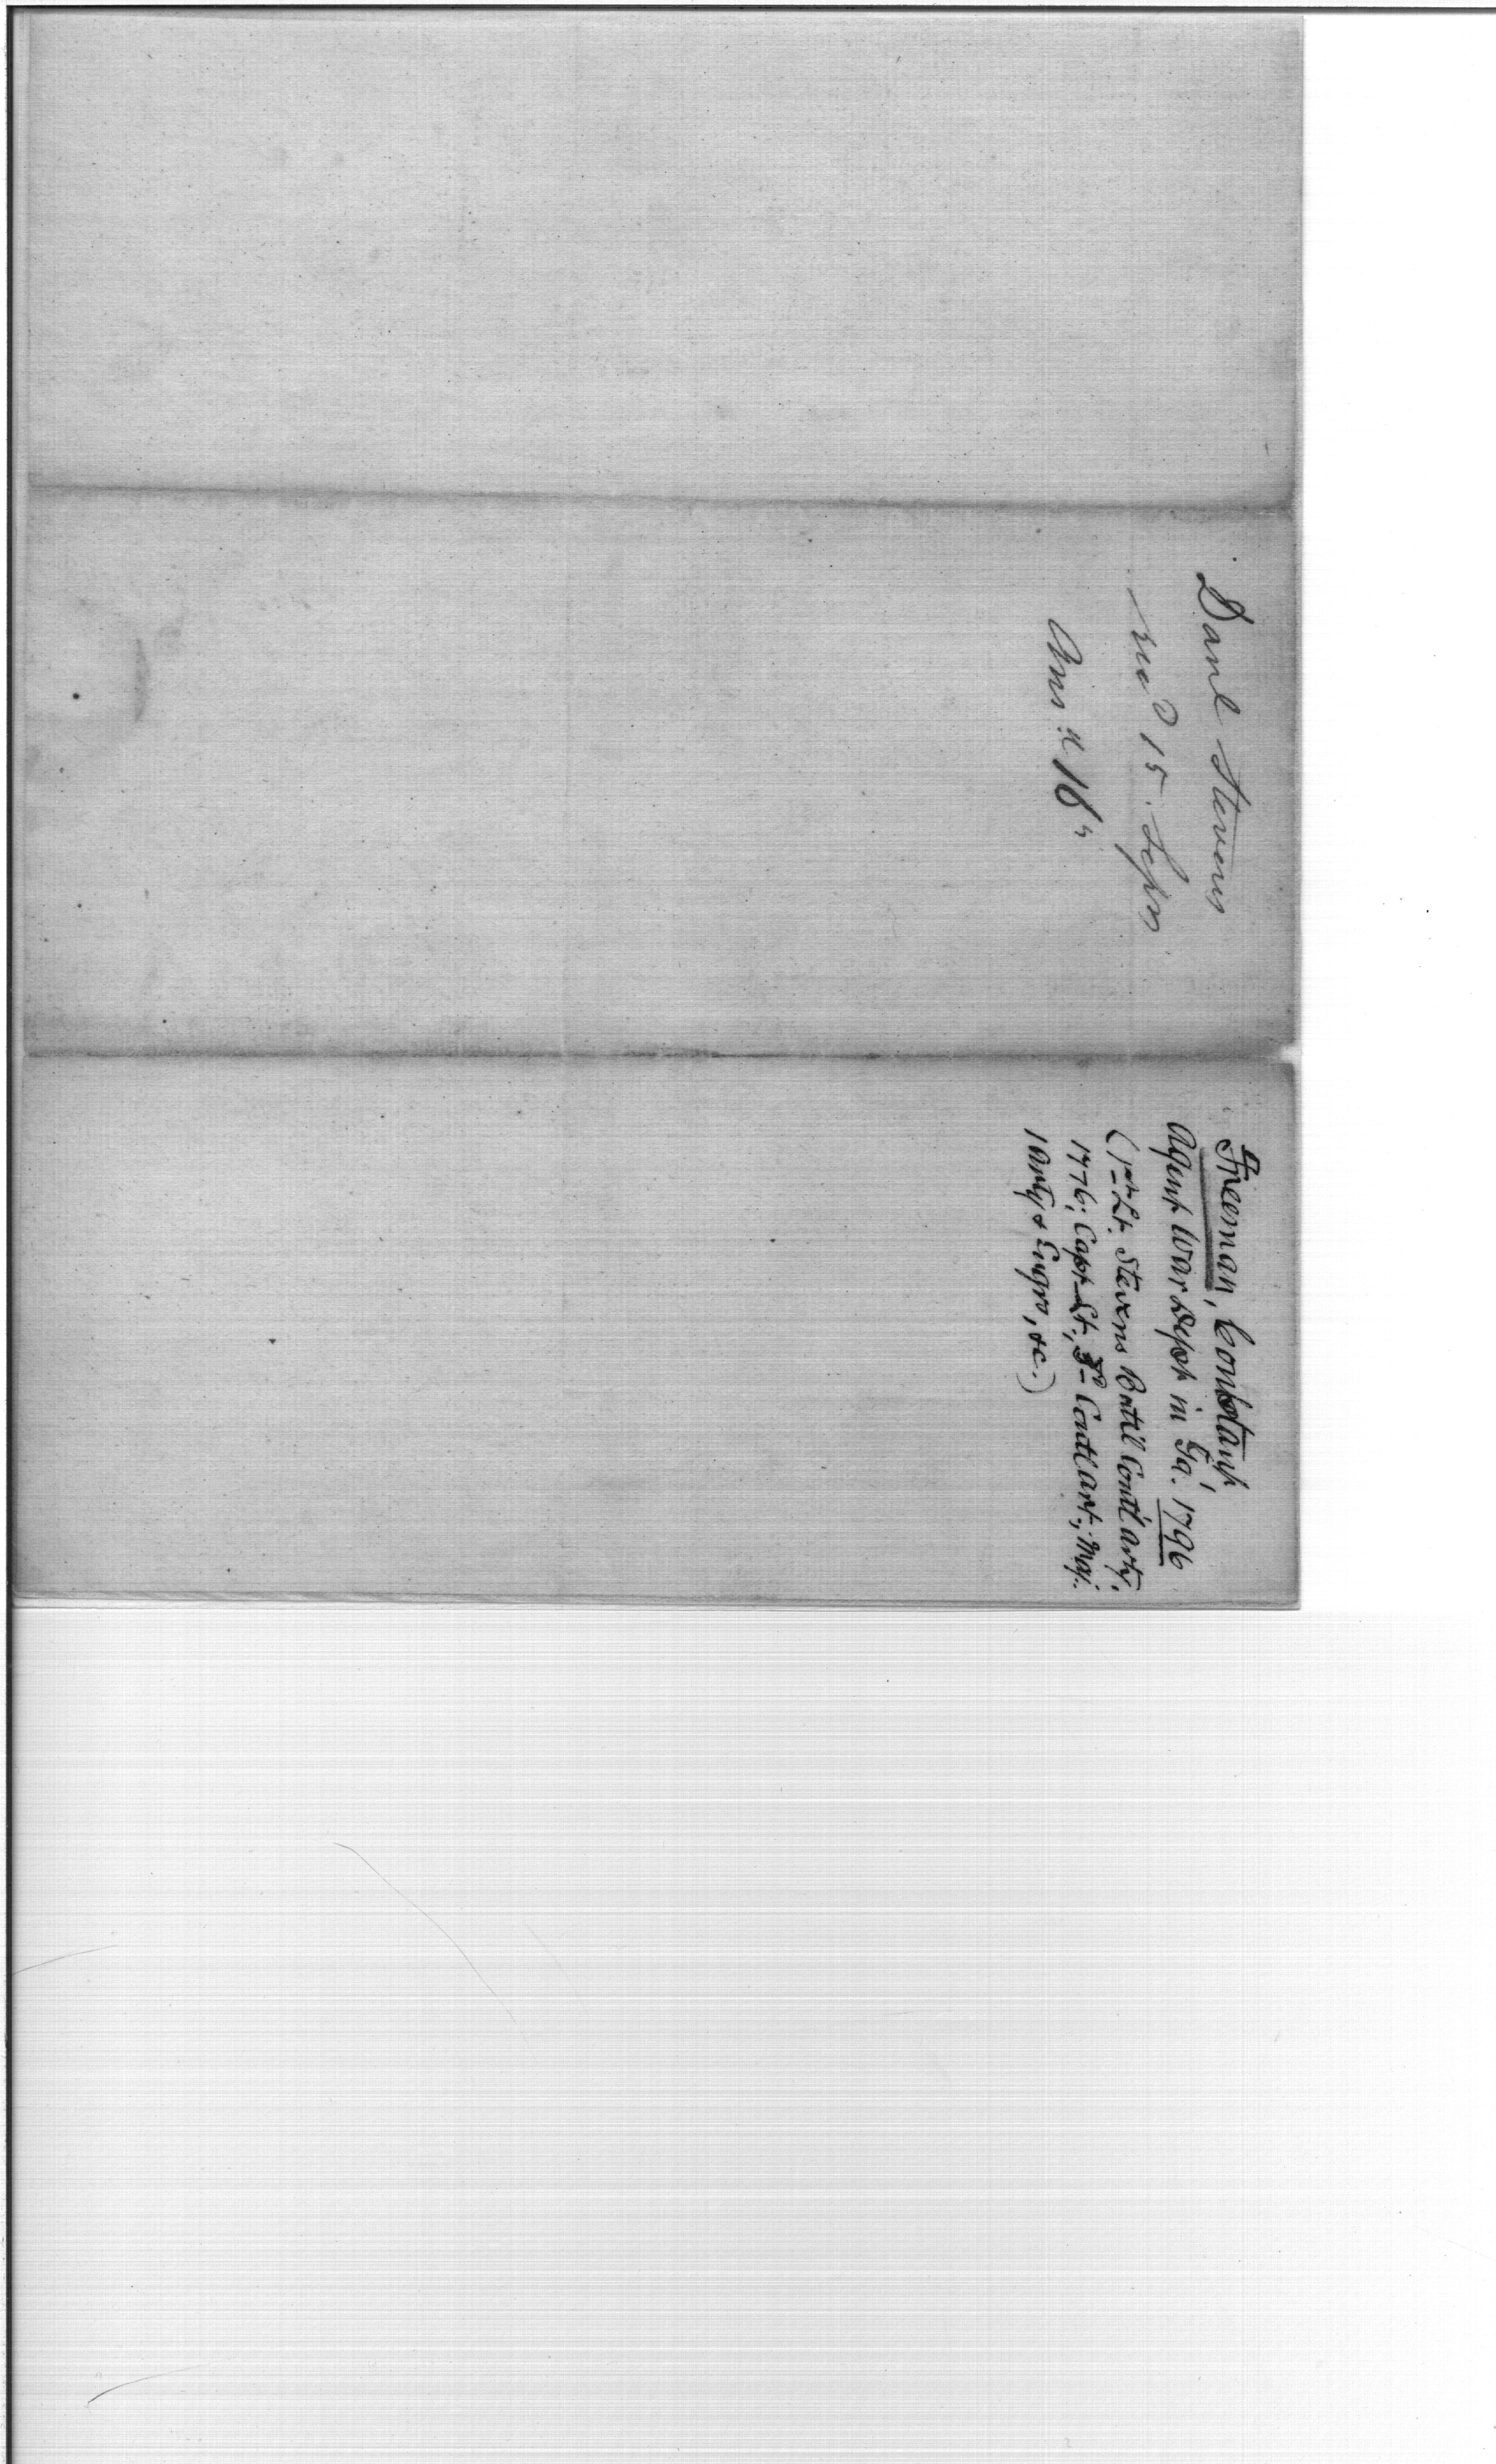 Danl Stevens
recd 15. Sepr
Ansd 16
Freeman, Constant,
Agent War Dept in Ga. 1796
(1st Lt. Stevens Battl Contl arty,
1776; Capt-Lt., 3d Contl art.; Maj.
1 arty & Engrs, &c.)